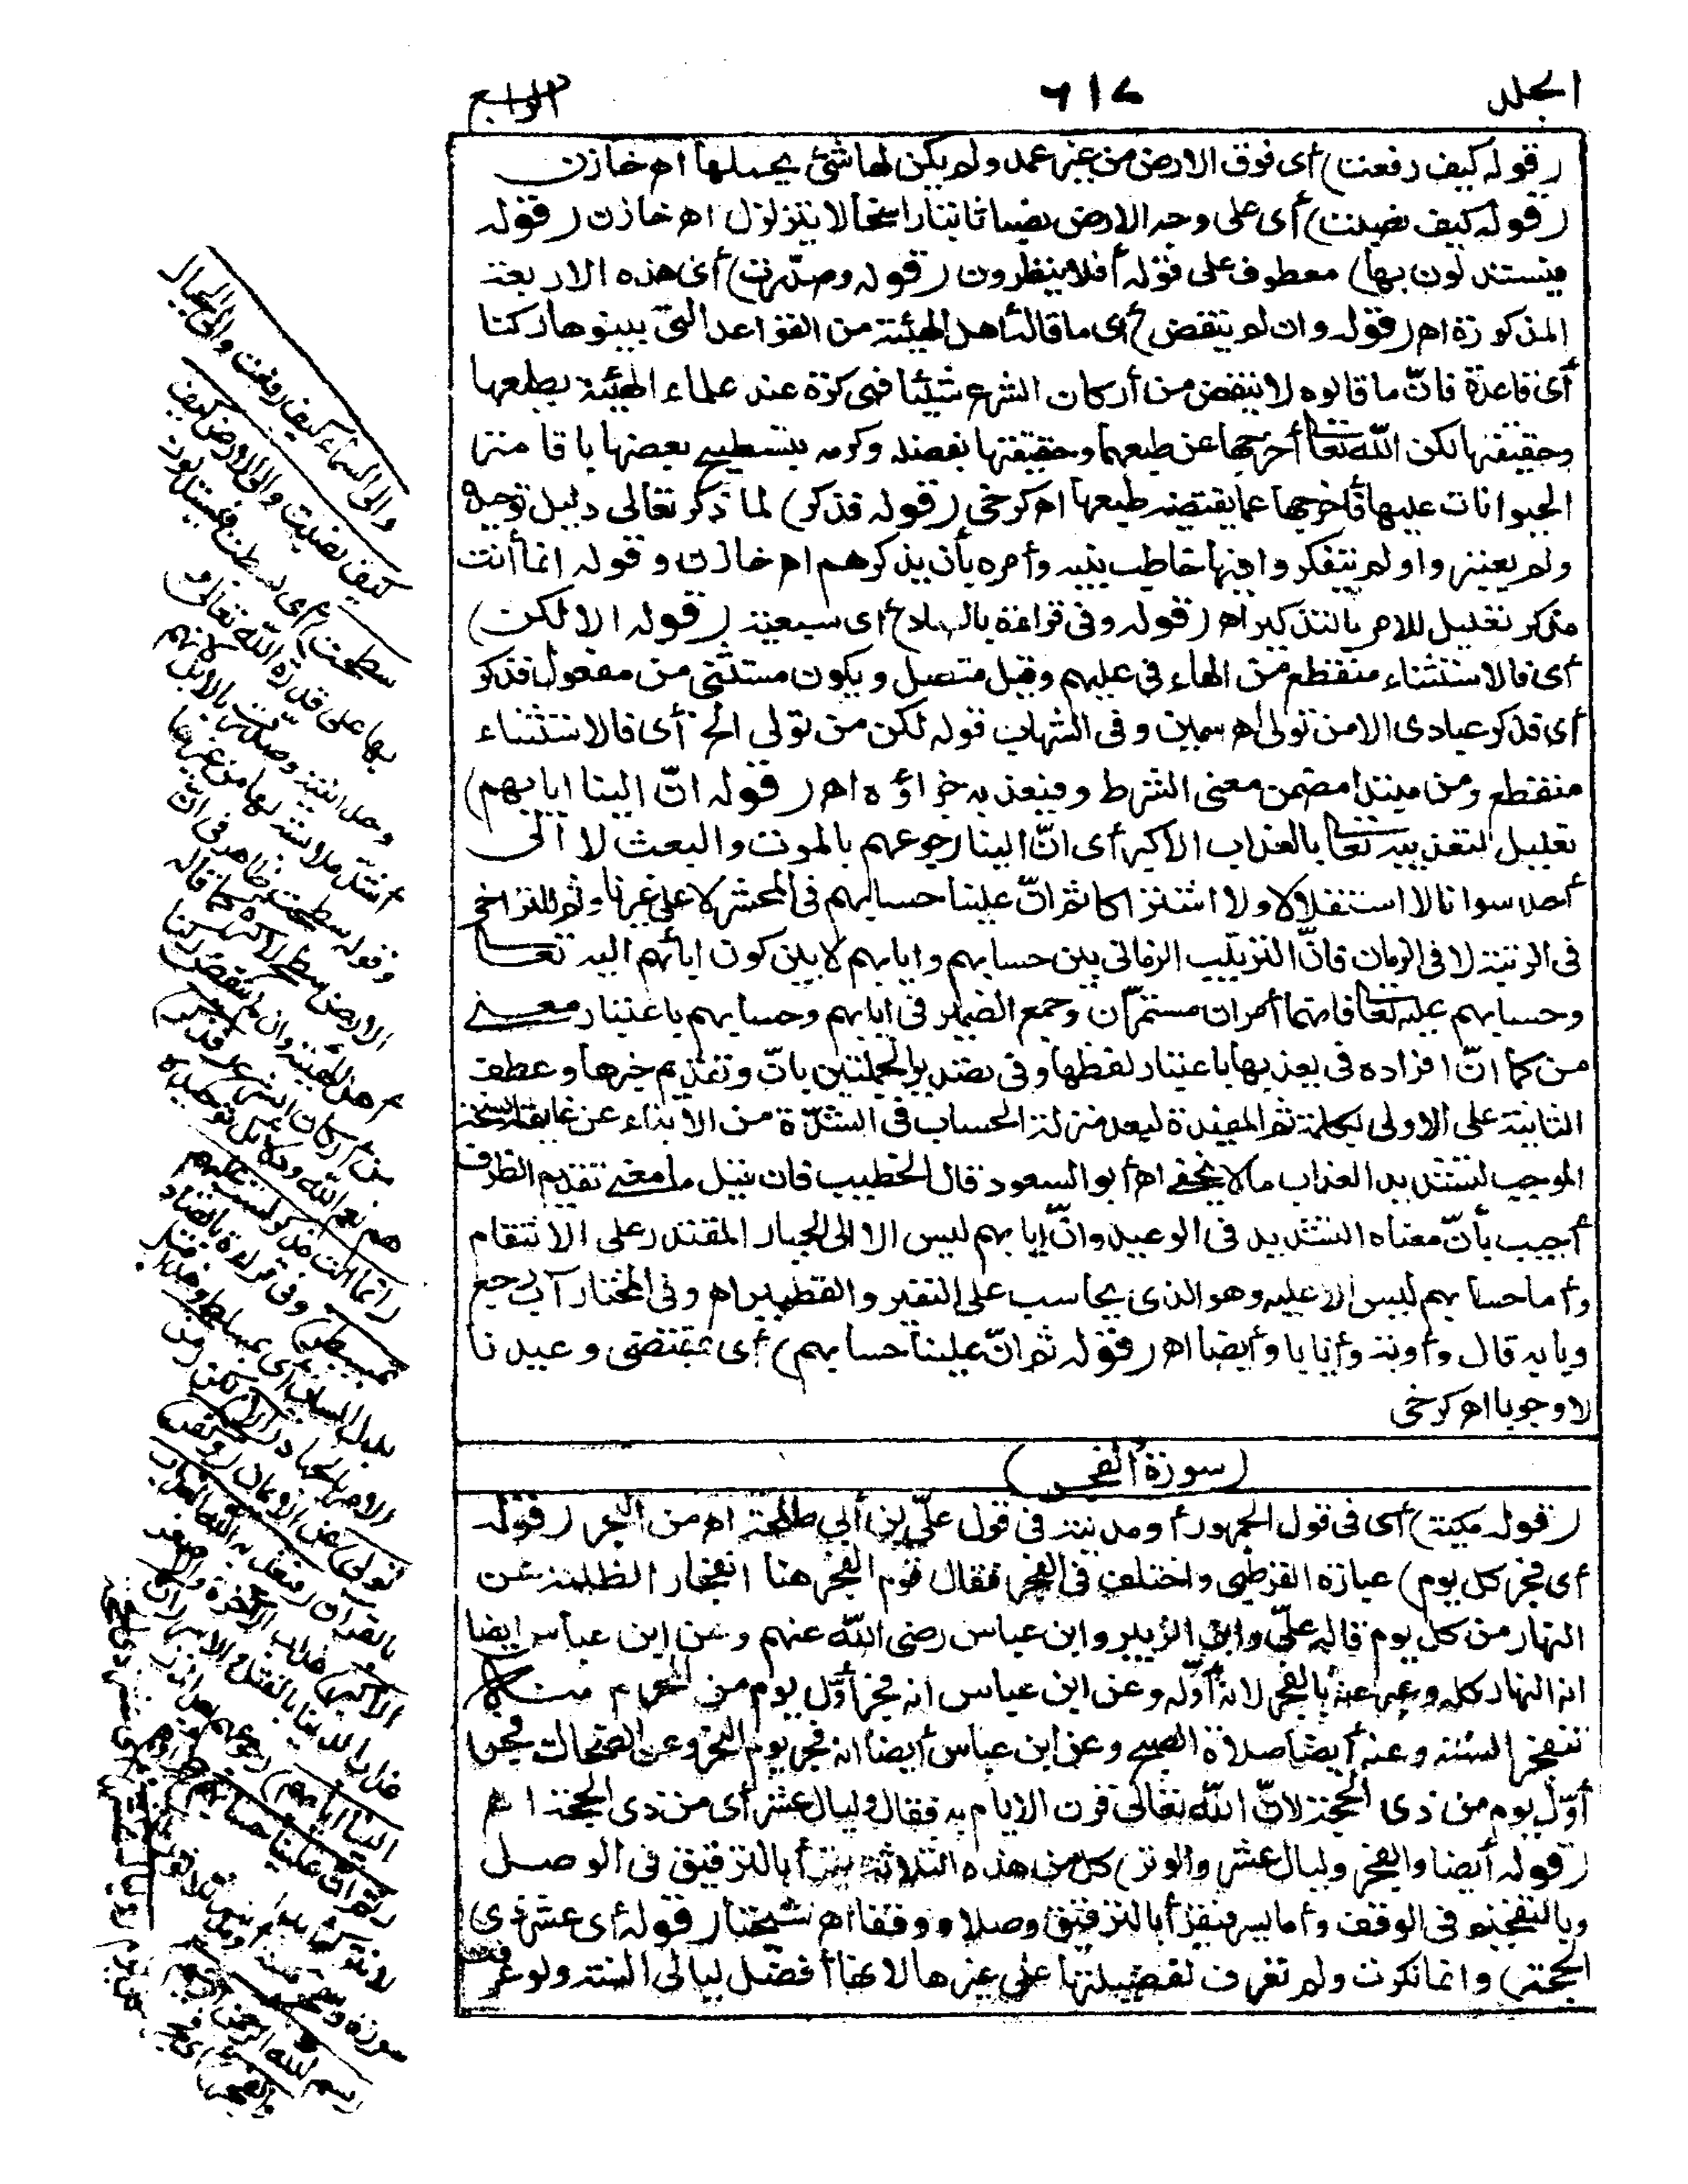 الجلد ٦١٧ الرابع
(قوله كيف رفعت) أى فوق الارض من غير عمد ولم يكن لها شئ يحملها اه خازن
(قوله كيف نصبت) أى على وجه الارض نصبا ثابتا راسخا لا يتزلزل اه خازن (قوله
فيستدلون بها) معطوف على قوله أفلا ينظرون (قوله وصدّرت) أى هذه الاربعة
المذكورة اه (قوله وان لم ينقض) أى ما قاله أهل الهيئة من القواعد التى بينوها ركنا
أى قاعدة فانّ ما قالوه لا ينقض من أركان الشرع شيئا فهى كرة عند علماء الهيئة بطبعها
وحقيقتها لكن الله تعا أخرجها عن طبعها وحقيقتها بفضله وكرمه بتسطيح بعضها باقامة
الحيوانات عليها فأخرجها عما يقتضيه طبعها اه كرخى (قوله فذكر) لما ذكر تعالى دليل توحيده
ولم يعتبروا ولم يتفكروا فيها خاطب نبيه وأمره بأن يذكرهم اه خازن وقوله انما أنت
مذكر تعليل للامر بالتذكير اه (قوله وفى قراءة بالصاد) أى سبعية (قوله الا لكن)
أى فالاستثناء منقطع من الهاء فى عليهم وقيل متصل ويكون مستثنى من مفعول فذكر
أى فذكر عبادى الا من تولى اه سمين وفى الشهاب قوله لكن من تولى الخ أى فالاستثناء
منقطع ومن مبتدأ مضمن معنى الشرط وفيعذبه جزاؤه اه (قوله انّ الينا ايابهم)
تعليل لتعذيبه تعا بالعذاب الاكبر أى انّ الينا رجوعهم بالموت والبعث لا الى
أحد سوانا لا استقلالا ولا اشتراكا ثم انّ علينا حسابهم فى المحشر لا على غيرنا وثم للتراخى
فى الرتبة لا فى الزمان فانّ الترتيب الزمانى بين حسابهم وايابهم لا بين كون ايابهم اليه تعا
وحسابهم عليه تعا فانهما أمران مستمرّان وجمع الضمير فى ايابهم وحسابهم باعتبار معنى
من كما انّ افراده فى يعذبها باعتبار لفظها وفى تصدير الجملتين بانّ وتقديم خبرها وعطف
الثانية على الاولى بكلمة ثم المفيدة لبعد منزلة الحساب فى الشدّة من الانباء عن غاية السخط
الموجب لتشديد العذاب ما لا يخفى اه أبو السعود قال الخطيب فان قيل ما معنى تقديم الظرف
أجيب بأنّ معناه التشديد فى الوعيد وانّ إيابهم ليس الا الى الجبار المقتدر على الانتقام
وأما حسابهم ليس الا عليه وهو الذى يحاسب على النقير والقطمير اه وفى المختار آب رجع
وبابه قال وأوبة وأيابا وأيضا اه (قوله ثم انّ علينا حسابهم) أى بمقتضى وعيدنا
لا وجوبا اه كرخى
(سورة الفجر)
(قوله مكية) أى فى قول الجمهور أو مدنية فى قول علىّ بن أبى طلحة اه من البحر (قوله
أى فجر كل يوم) عبارة القرطبى واختلف فى الفجر فقال قوم الفجر هنا انفجار الظلمة عن
النهار من كل يوم قاله علىّ وابن الزبير وابن عباس رضى الله عنهم وعن ابن عباس ايضا
انه النهار كله وعبر عنه بالفجر لانه أوّله وعن ابن عباس انه فجر أوّل يوم من المحرم منه
تنفجر السنة وعنه أيضا صلاة الصبح وعن ابن عباس أيضا انه فجر يوم النحر وعن الضحاك فجر
أوّل يوم من ذى الحجة لانّ الله تعالى قرن الايام به فقال وليال عشر أى من ذى الحجة اه
(قوله أيضا والفجر وليال عشر والوتر) كل من هذه الثلاثة يقرأ بالترقيق فى الوصل
وبالتفخيم فى الوقف وأما يسر فيقرأ بالترقيق وصلا ووقفا اه شيخنا (قوله أى عشر ذى
الحجة) وانما نكرت ولم تعرف لفضيلتها على غيرها لانها أفضل ليالى السنة ولو عرفت
والى السماء كيف رفعت والى الجبال
كيف نصبت والى الارض كيف
سطحت) أى بسطت فيستدلون
بها على قدرة الله تعالى و
وحدانيته وصدّرت بالابل لانهم
أشدّ ملابسة لها من غيرها
وقوله سطحت ظاهر فى انّ
الارض سطح لا كرة كما قاله
أهل الهيئة وان لم ينقض ركنا
من أركان الشرع (فذكر)
هم نعم الله ودلائل توحيده
(انما أنت مذكر لست عليهم
بمسيطر) وفى قراءة بالصاد
بدل السين أى بمسلط وهذا قبل
الامر بالجهاد (الا) لكن (من
تولى) عن الايمان (وكفر)
بالقرآن (فيعذبه الله العذاب
الاكبر) عذاب الآخرة والاصغر
عذاب الدنيا بالقتل والاسر (انّ
الينا ايابهم) رجوعهم بعد الموت
(ثم انّ علينا حسابهم) جزاءهم
لا نتركه أبدا
بسم الله الرحمن الرحيم
(والفجر) أى فجر